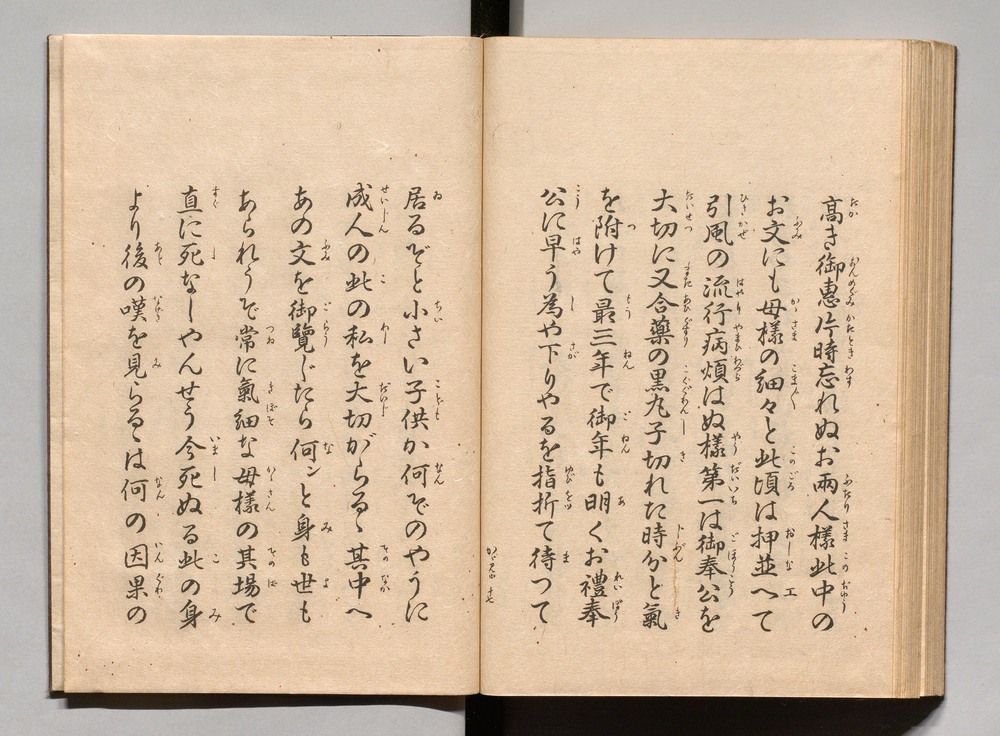 高き御恵片時忘れぬお兩人樣此中の
お文にも母樣の細々と此頃は押並へて
引風の流行病煩はぬ樣第一は御奉公を
大切に又合藥の黒丸子切れた時分と氣
を附けて最三年で御年も明くお禮奉
公に早う為や下りやるを指折て待つて
居るぞと小さい子供か何ぞのやうに
成人の此の私を大切がらるゝ其中へ
あの文を御覽じたら何ンと身も世も
あられうぞ常に氣細な母樣の其場で
直に死なしやんせう今死ぬる此の身
より後の嘆を見らるゝは何の因果の